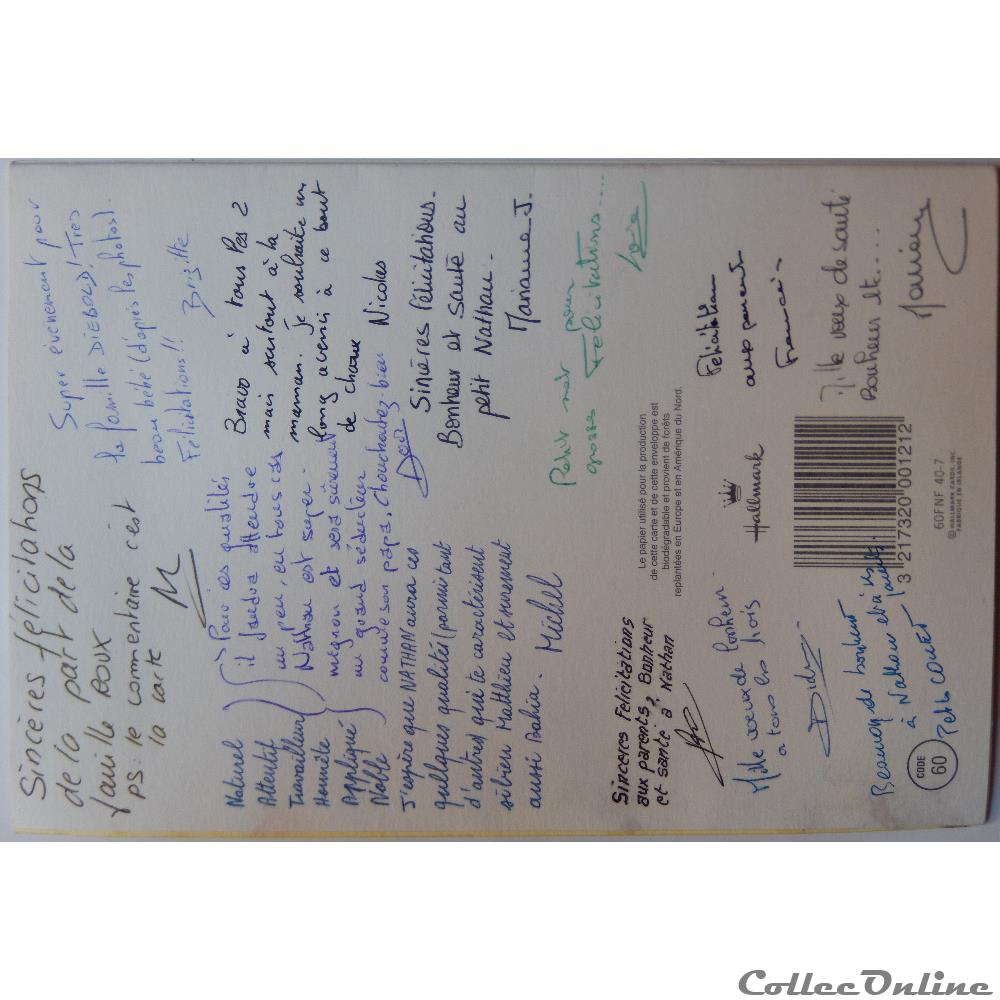 Sincères félicitations
de la part de la
famille ROUX
PS: le commentaire c'est
la carte
Super évènement pour
la famille DIEBOLD! Très
beau bébé (d'après les photos).
Félicitations!! Brigitte
Naturel
Attentif
Travailleur
Honnête
Appliqué
Noble
J'espère que NATHAN aura ces
quelques qualités (parmi tant
d'autres) que te caractérisent
si bien Matthieu et surement
aussi Bahia. Michel
Pour ces qualités
il faudra attendre
un peu, en tous cas
Nathan est super
mignon et sera sûrement
un grand séducteur
comme son papa. Chouchoutez-bien
Bravo à tous les 2
mais surtout à la
maman. Je souhaite un
long avenir à ce bout
de choux
Nicolas
Sincères Félicitations.
Bonheur et Santé au
petit Nathan.
Marianne J.
Petit mot pour
grosses Félicitations...
Sinceres Felicitations
aux parents, Bonheur
et santé à Nathan
Le papier utilisé pour la production
de cette carte et de cette enveloppe est
biodégradable et provient de forêts
replantées en Europe et en Amérique du Nord.
Felicitation
aux parents
Francis
Mille voeux de bonheur
a tous les trois
Didier
Hallmark
Mille voeux de santé
Bonheur etc....
Beaucoup de bonheur
à Nathan et à ses
parents.
3 217320 001212
60FNF 40-7
© HALLMARK CARDS, INC.
FABRIQUÉ EN IRLANDE
CODE
60
CollecOnline